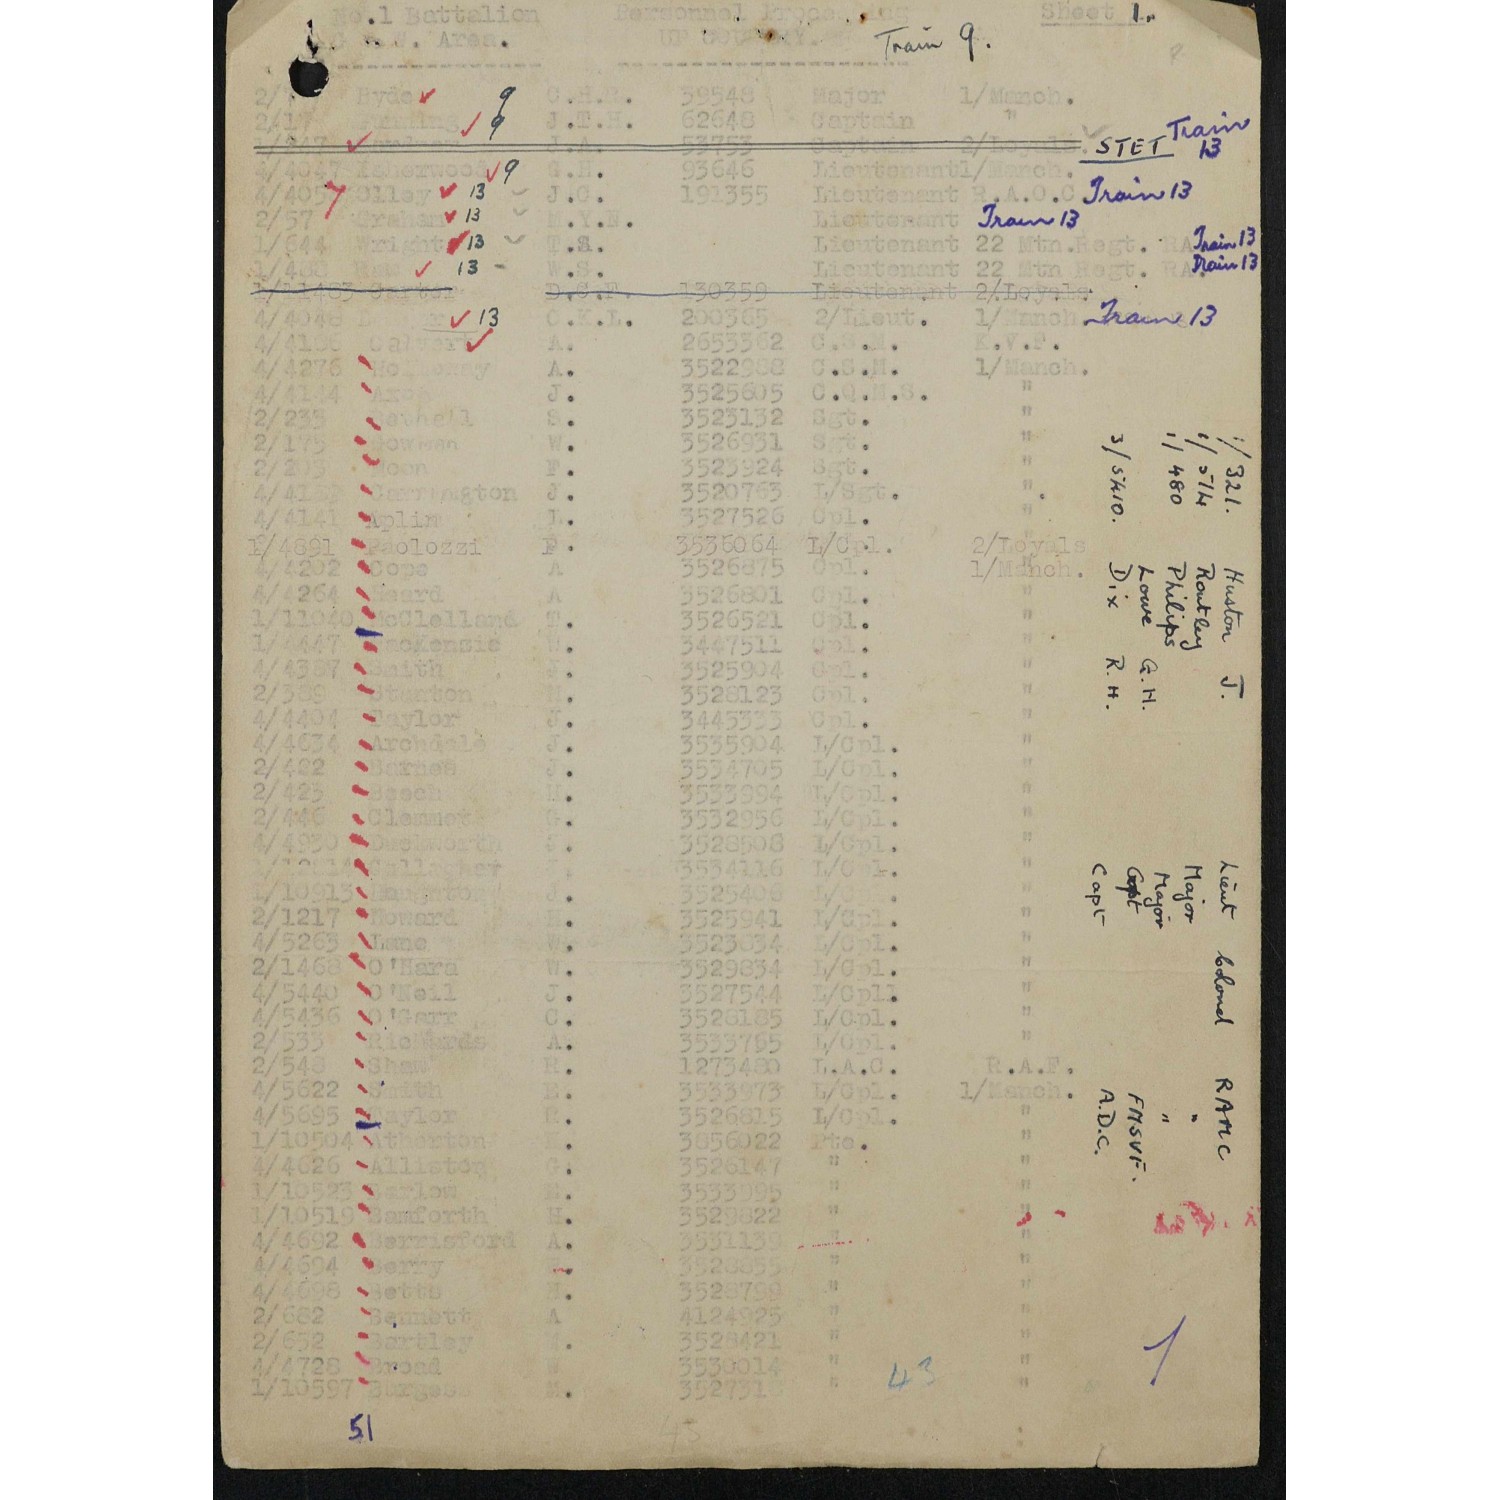 No.1 Battalion Personnel Processing Sheet 1.
& W. Area. UP COUNTRY. Train 9.
Hyde 9 C.H.R. 39548 Major 1/Manch.
9 J.T.H. 62648 Captain "
J.A. 53753 Captain 2/Loyals. STET Train 13
4/4047 Isherwood 9 G.H. 93646 Lieutenant 1/Manch.
4/4057 Olley 13 J.C. 191355 Lieutenant R.A.O.C Train 13
2/57 Graham 13 M.Y.E. Lieutenant Train 13
1/644 Wright 13 T.S. Lieutenant 22 Mtn.Regt. RA Train 13
13 W.S. Lieutenant 22 Mtn Regt. RA. Train 13
1/11463 Carter D.C.F. 130359 Lieutenant 2/Loyals
13 C.K.L. 200365 2/Lieut. 1/Manch Train 13
Calvert A. 2653362 C.S.M. K.V.F.
4/4276 Holloway A. 3522988 C.S.M. 1/Manch.
4/4144 J. 3525605 C.Q.M.S. "
2/235 Bethell S. 3523132 Sgt. "
2/175 Bowman W. 3526931 Sgt. "
Moon F. 3523924 Sgt. "
Carrington J. 3520763 L/Sgt. "
4/4141 Aplin 3527526 Cpl.
1/4891 Paolozzi F. 3536064 L/Cpl. 2/Loyals
4/4202 Cope A 3526875 Cpl. 1/Manch.
4/4264 Heard A 3526801 Cpl. "
1/11040 McClelland T. 3526521 Cpl. "
1/4447 MacKensie W. 3447511 Cpl. "
4/4387 Smith J. 3525904 Cpl. "
2/389 Stanton H. 3528123 Cpl. "
4/4404 Taylor J. 3445333 Cpl. "
4/4634 Archdale J. 3535904 L/Cpl. "
2/422 Barnes J. 3534705 L/Cpl. "
2/423 Beech H. 3533994 L/Cpl. "
2/446 Clemmet G. 3532956 L/Cpl. "
4/4930 Duckworth 3528508 L/Cpl. "
Gallagher J. 3534116 L/Cpl. "
1/10913 J. 3525406 "
2/1217 Howard H. 3525941 L/Cpl. "
4/5263 Lane W. 3523034 L/Cpl. "
2/1468 O'Hara W. 3529834 L/Cpl. "
4/5440 O'Neil J. 3527544 L/Cpll "
4/5436 O'Garr C. 3528185 L/Cpl. "
2/533 Richards A. 3533765 L/Cpl. "
2/548 Shaw R. 1273480 L.A.C. R.A.F.
4/5622 Smith E. 3533973 L/Cpl. 1/Manch.
4/5695 Taylor R. 3526815 L/Cpl. "
1/10504 Atherton 3856022 Pte. "
4/4626 Alliston G. 3526147 " "
1/10523 Barlow 3533995 " "
1/10519 Bamforth H. 3529822 " "
4/4692 Berrisford A. 3531139 " "
4/4694 Berry 3528855 " "
4/4698 Betts H. 3528799 " "
2/682 Bennett A 4124925 " "
2/652 Bartley 3528421 " "
4/4728 Broad 3530014 " "
1/10597 Burgess M. 3527318 " "
43
51
45
1/321. Huston J. Lieut Colonel RAMC
1/514 Routley Major "
1/480 Philips Major "
Lowe G.H. Capt FMSVF.
3/5410. Dix R.H. Capt A.D.C.